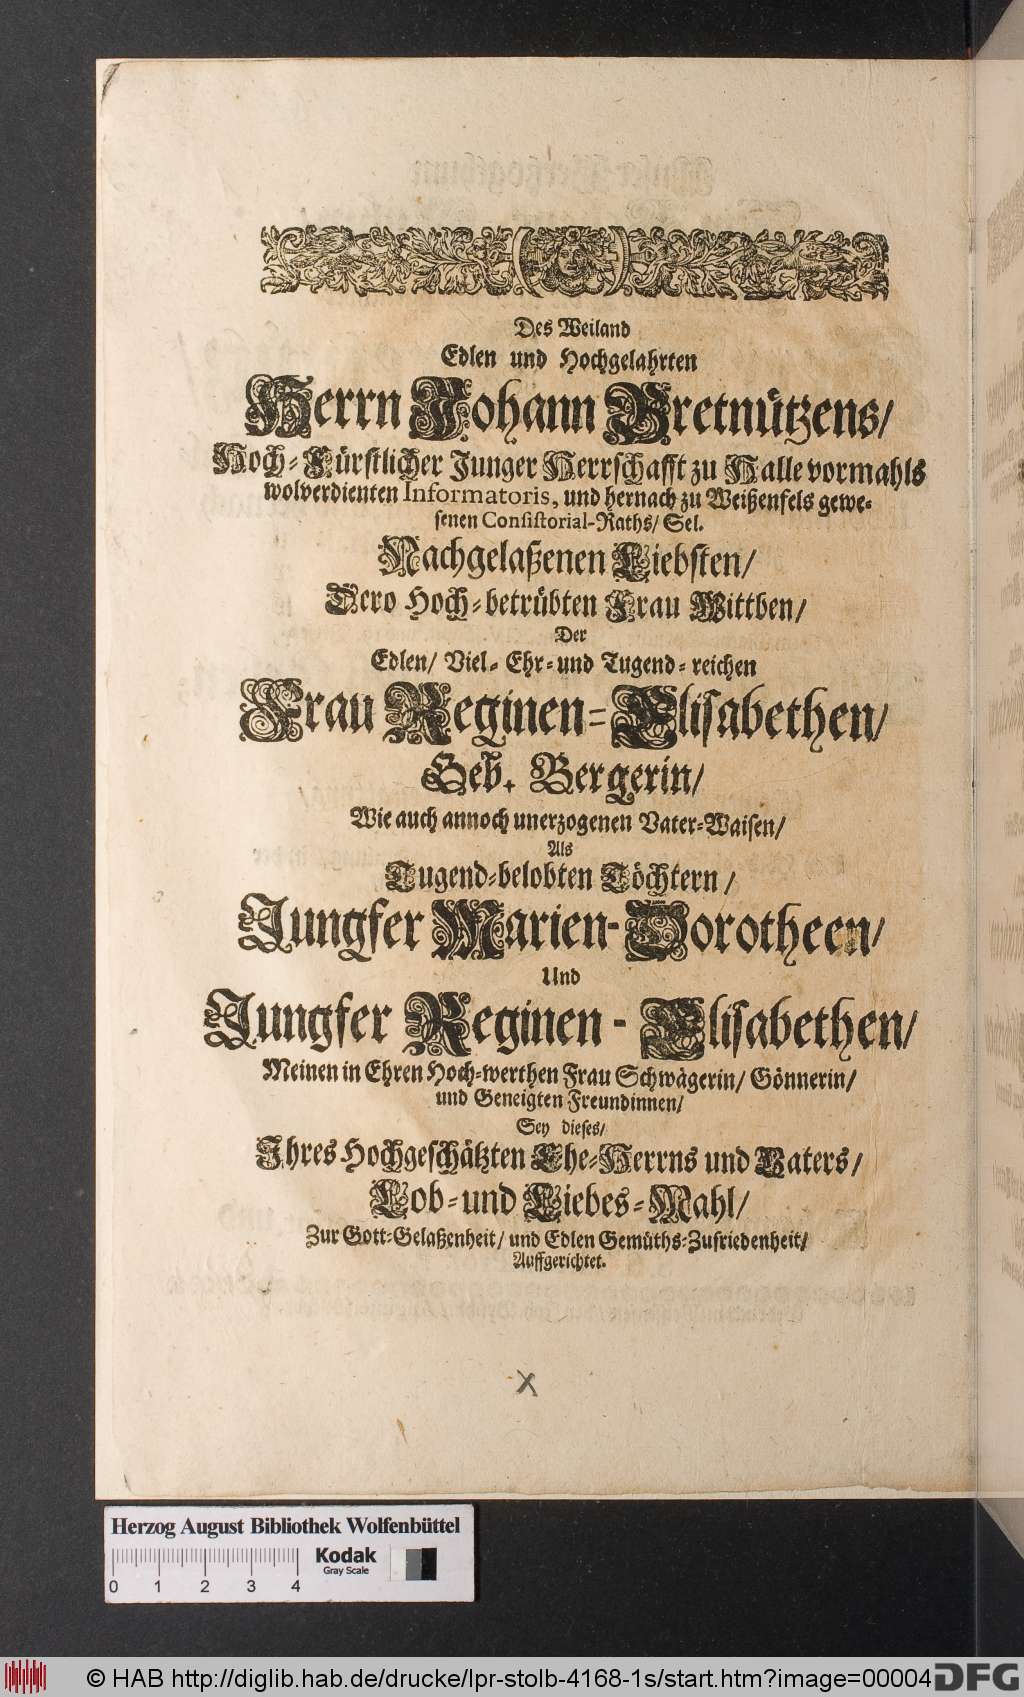 Des Weiland
Edlen und Hochgelahrten
Herrn Johann Bretnützens/
Hoch-Fürstlicher Junger Herrschafft zu Halle vormahls
wolverdienten Informatoris, und hernach zu Weißenfels gewe-
senen Consistorial-Raths/ Sel.
Nachgelaßenen Liebsten/
Dero Hoch-betrübten Frau Wittben/
Der
Edlen/ Viel-Ehr-und Tugend-reichen
Frau Reginen-Elisabethen/
Geb. Bergerin/
Wie auch annoch unerzogenen Vater-Waisen/
Als
Tugend-belobten Töchtern/
Jungfer Marien-Dorotheen/
Und
Jungfer Reginen-Elisabethen/
Meinen in Ehren Hoch-werthen Frau Schwägerin/ Gönnerin/
und Geneigten Freundinnen/
Sey dieses/
Ihres Hochgeschätzten Ehe-Herrns und Vaters/
Lob-und Liebes-Mahl/
Zur Gott-Gelaßenheit/ und Edlen Gemüths-Zufriedenheit/
Auffgerichtet.
Herzog August Bibliothek Wolfenbüttel
Kodak
Gray Scale
0 1 2 3 4
© HAB http://diglib.hab.de/drucke/lpr-stolb-4168-1s/start.htm?image=00004
DFG